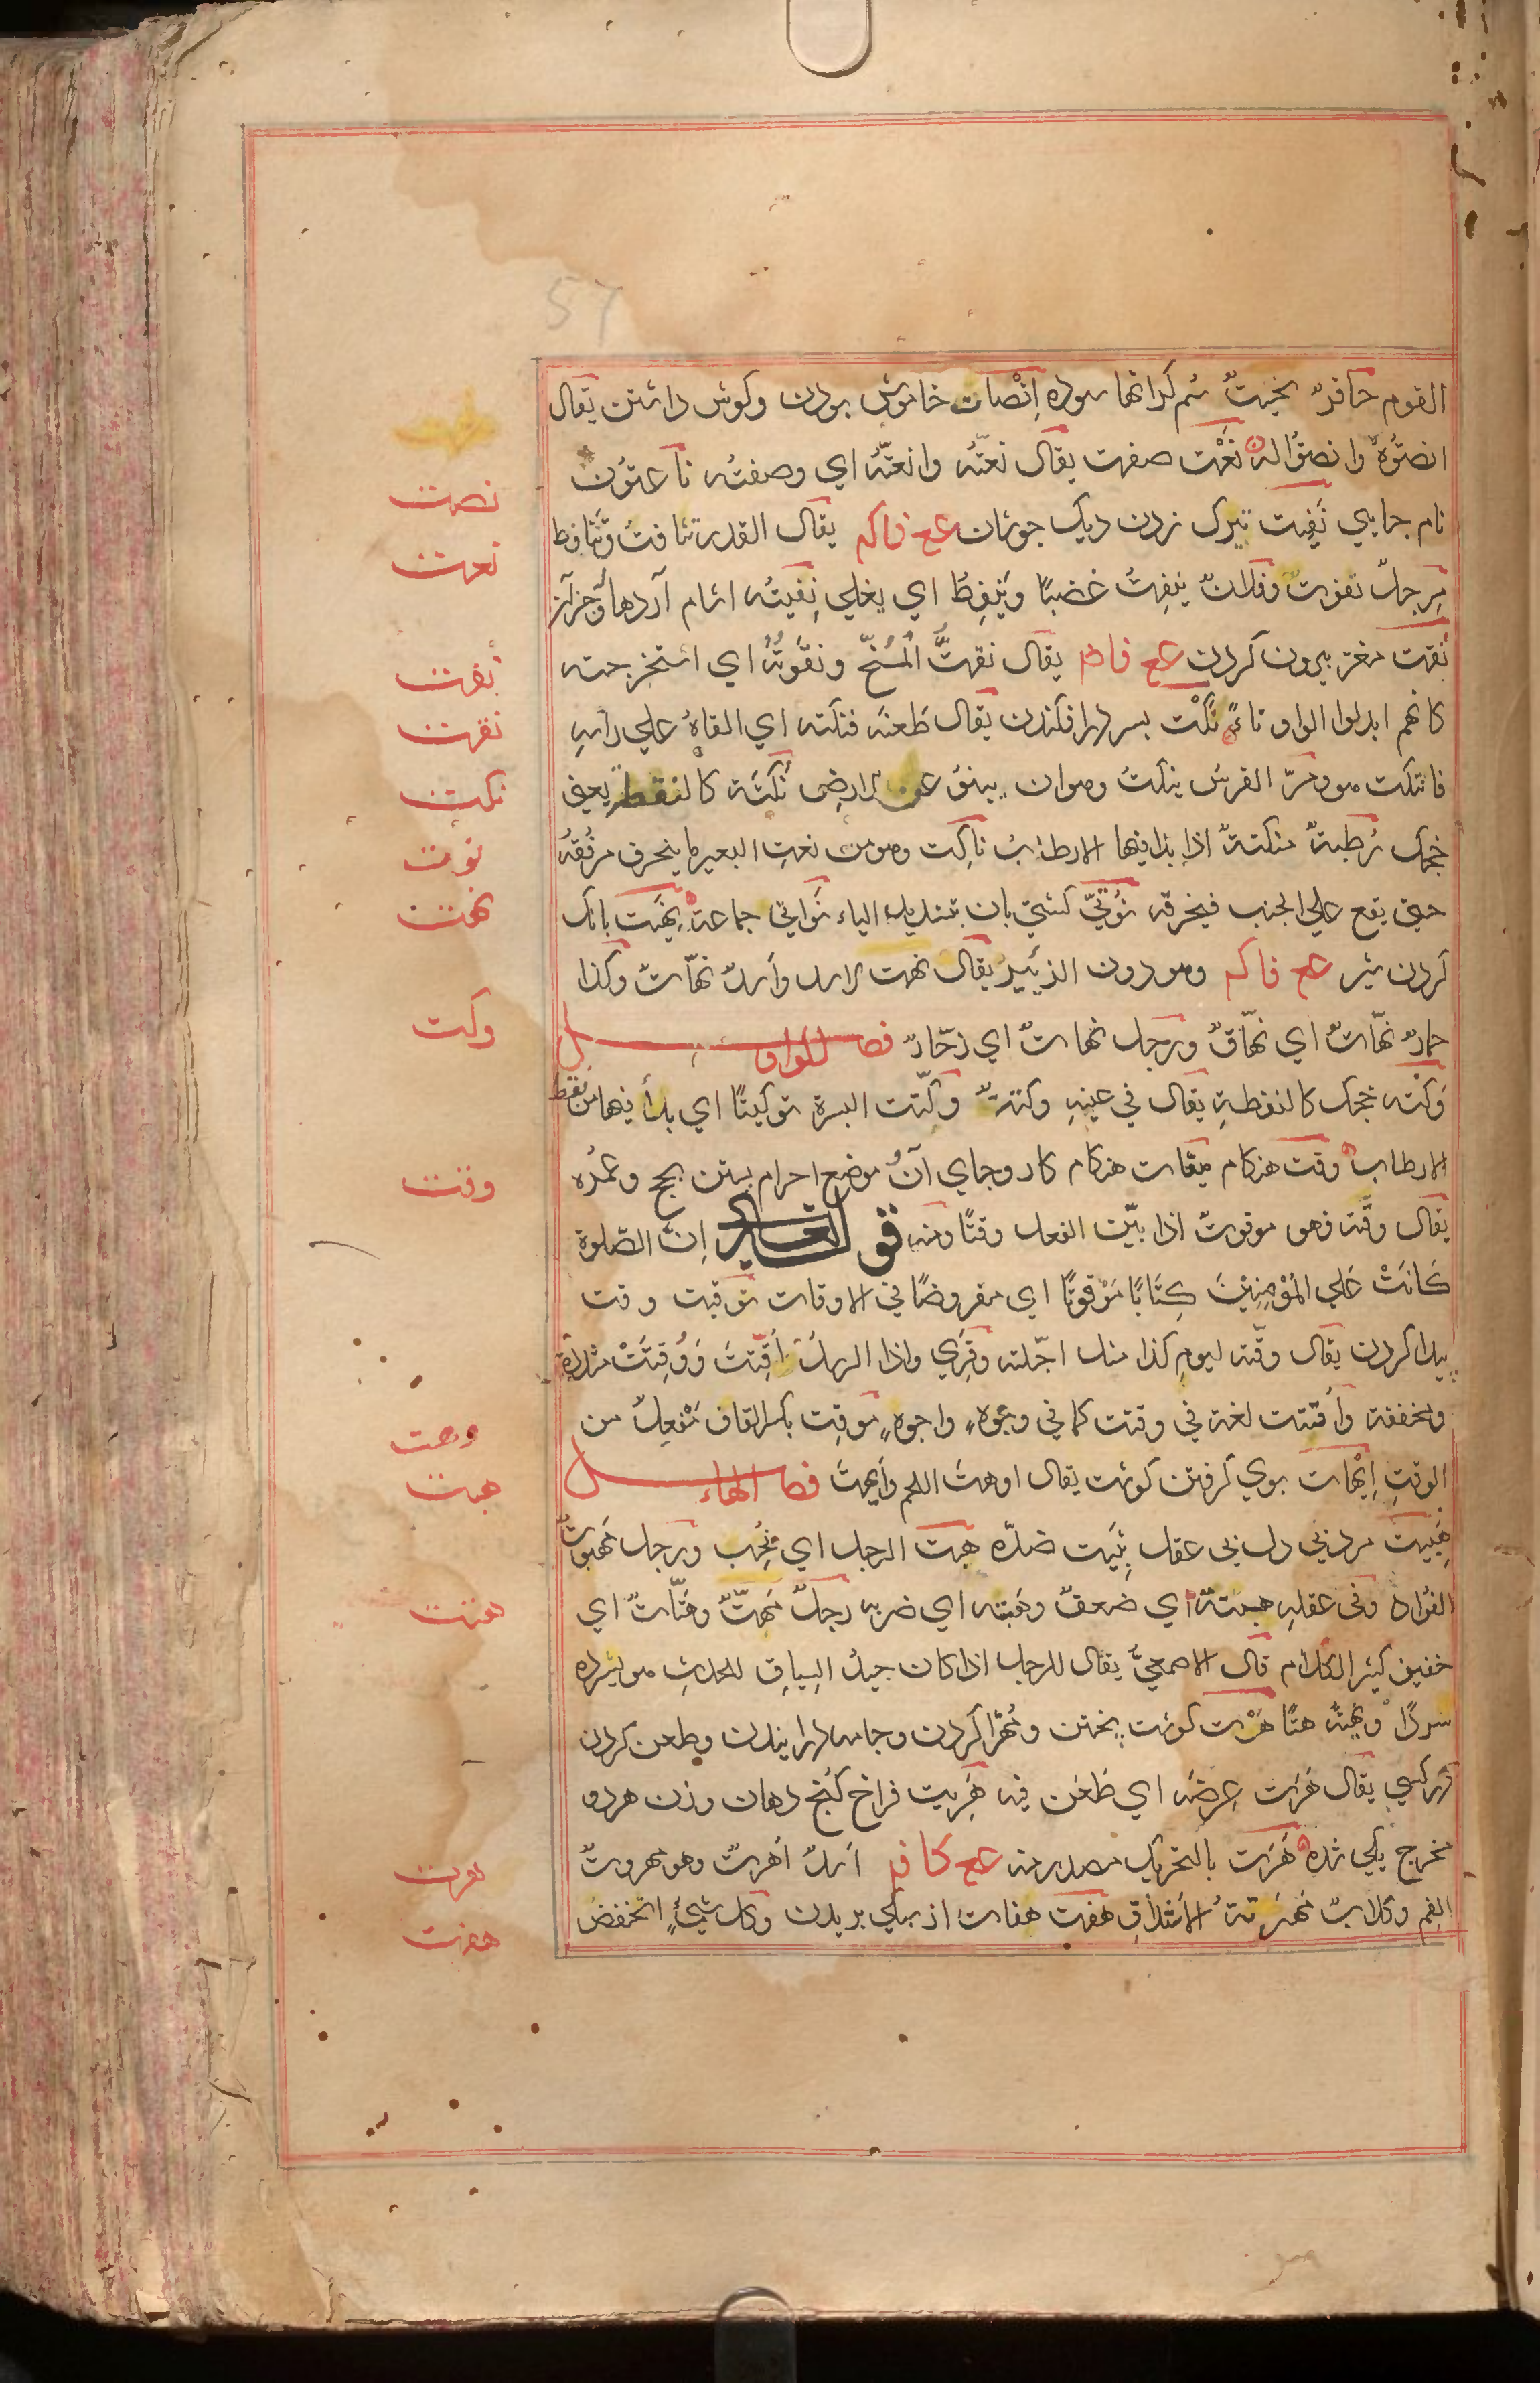 القوم حافرٌ نحیتٌ سُم کرانها سوده اِنْصات خاموش بودن وکوش داشتن یقال
انصتُوهُ وانصتُوا له نَعْت صفت یقال نعتّه وانعتّهُ ای وصفتُه ناعتون
نام جایی نَفِیت تیرک زدن دیک جوشان ع ف ک م یقال القدر تنافتُ وتنافط
مِرجلٌ نفوتٌ وفلانٌ ینفِتُ غضبًا ویَنفِطُ ای یغلی نِفیتُه
نَقت مغز بیرون کردن ع ف ا ض م یقال نقتُّ المُخّ ونقَوتُهُ ای استخرجته
کانهم ابدلوا الواو تاءً نَکْت بسر در افکندن یقال طَعنَه فنکته ای القاهُ علی رأسه
فانتکت هو ومرّ الفرسُ ینکتُ وهو ان ینبُوَ عن الارضِ نُکتَه کالنقطة یعنی
خجک رُطبةٌ منکتةٌ اذا بدا فیها الارطابُ ناکِت وهو من نعت البعیر ما ینحرف مرفقه
حتی یقع علی الجنب فیخرقه نُوتیّ کشتی بان بتشدید الیاء نَواتی جماعة نَهِیت بانک
کردن شیر ع ف ا ک م وهو دون الزئیر یقال نهت الاسد واَسدٌ نهّاتٌ وکذا
حمارٌ نهّاتٌ ای نهّاقٌ ورجل نهاتٌ ای زحّارٌ فصل الواو
وَکْتَه خجک کالنقطةِ یقال فی عینهِ وکتةٌ وکّتت البسرة توکیتًا ای بدأ فیها من نقط
الارطاب وقت هنکام میقات هنکام کار وجای آن موضع احرام بستن بحج وعمره
یقال وقّته فهو موقوتٌ اذا بیّن الفعل وقتًا ومنه قوله تعالی اِنّ الصّلوة
کَانَتْ عَلی المُؤمِنِینَ کِتَابًا مَوْقوتًا ای مفروضًا فی الاوقات توقیت وقت
پیدا کردن یقال وقّته لیوم کذا مثل اجّلته وقُرِئ واذا الرسلُ اُقِّتتْ وَوُقِتَتْ مشددة
ومخففة واُقتت لغة فی وقتت کما فی وجوهٍ واجوهٍ مَوقِت بکسر القاف مَفعِلٌ من
الوقتِ اِیْهات بوی کرفتن کوشت یقال اوهتَ اللحم واَیهتَ فصل الهاء
هَبِیت مرد بی دل بی عقل ثَبِیت ضدّه هبت الرجل ای نُخِب ورجل مَهبوتُ
الفُؤاد وفی عقلهِ هبتةٌ ای ضعفٌ وهَبتَه ای ضربه رجلٌ مِهَتٌّ وهَتّاتٌ ای
خفیف کثیر الکلام قال الاصمعیُّ یقال للرجل اذا کان جیدُ السِیاقِ للحدیثِ هو یسرده
سردًا ویهتُّه هتًا هَرْت کوشت پختن ومُهرّا کردن وجامه درانیدن وطعن کردن
در کسی یقال هَرَت عِرضَه ای طعَن فیه هَرِیت فراخ کُنج دهان وزن هر دو
مخرج یکی شده هَرَت بالتحریک مصدر منه ع ک ا ف م اسدٌ اَهرتٌ وهو مهروتٌ
الفم وکلابٌ مُهَرّتةُ الاَشداقِ هفت هفات از یکی بریدن وکل شیءٍ انخفضُ
نصت
نعت
نفت
نقت
نکت
نوت
نهت
وکت
وقت
وهت
هبت
هتت
هرت
هفت
57